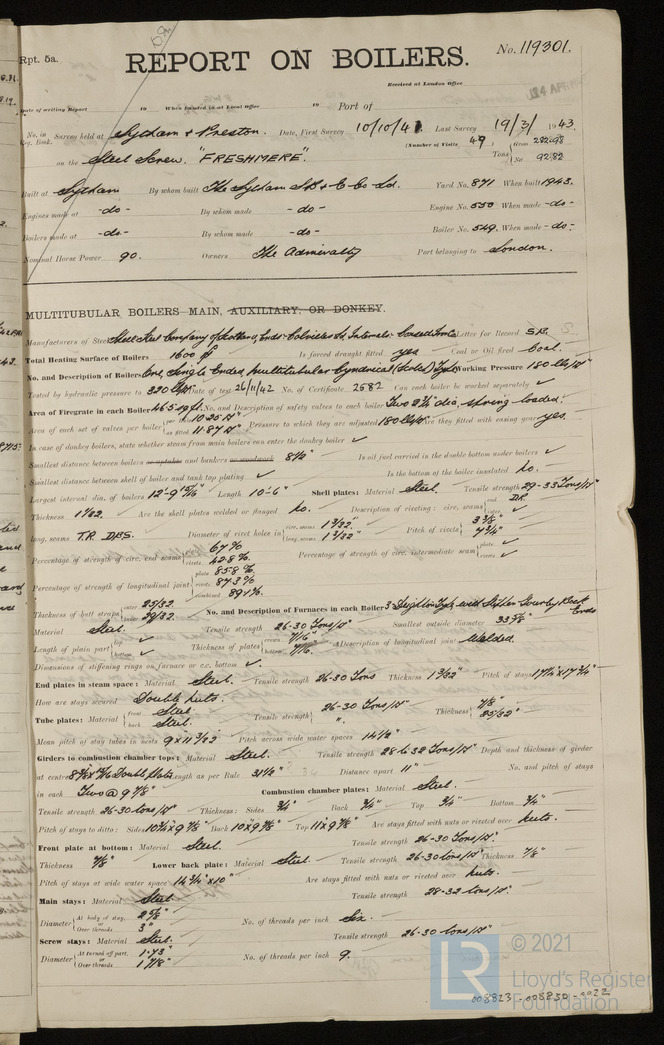 Rpt. 5a.
REPORT ON BOILERS.
No. 119301.
Received at London Office
Date of writing Report 19 When handed in at Local Office 19 Port of
No. in Reg. Book. Survey held at Lytham & Preston. Date, First Survey 10/10/41 Last Survey 19/3/1943
(Number of Visits 49)
on the Steel Screw "FRESHMERE". Tons Gross 282.98 Net 92.82
Built at Lytham By whom built The Lytham S.B. & E. Co Ld. Yard No. 871 When built 1943.
Engines made at -do- By whom made -do- Engine No. 550 When made -do-
Boilers made at -do- By whom made -do- Boiler No. 549. When made -do-
Nominal Horse Power 90. Owners The Admiralty Port belonging to London.
MULTITUBULAR BOILERS MAIN, AUXILIARY, OR DONKEY.
Manufacturers of Steel Letter for Record S.
Total Heating Surface of Boilers 1600 Is forced draught fitted yes Coal or Oil fired Coal.
No. and Description of Boilers One, Single Ended, Multitubular Cylindrical Working Pressure 180 lbs/□"
Tested by hydraulic pressure to 320 Date of test 26/11/42 No. of Certificate 2682 Can each boiler be worked separately ✓
Area of Firegrate in each Boiler No. and Description of safety valves to each boiler Two dia. spring loaded.
Area of each set of valves per boiler per Rule as fitted 11.87 □" Pressure to which they are adjusted 180 lbs Are they fitted with easing gear yes.
In case of donkey boilers, state whether steam from main boilers can enter the donkey boiler ✓
Smallest distance between boilers or uptakes and bunkers or woodwork 8½" Is oil fuel carried in the double bottom under boilers ✓
Smallest distance between shell of boiler and tank top plating ✓ Is the bottom of the boiler insulated no.
Largest internal dia. of boilers 12'-9 Length 10'-6" Shell plates: Material Steel. Tensile strength 29-33 Tons/□"
Thickness 1 1/32. Are the shell plates welded or flanged no. Description of riveting: circ. seams end D.R.
long. seams T.R. D.B.S. Diameter of rivet holes in circ. seams 1 3/32. long. seams 1 3/32" Pitch of rivets 3 3/8" 7 3/4"
Percentage of strength of circ. end seams plate 67% rivets 42.8% Percentage of strength of circ. intermediate seam plate ✓ rivets ✓
Percentage of strength of longitudinal joint plate 85.8% rivets 87.3% combined 89.1%
Thickness of butt straps outer 25/32. inner 29/32. No. and Description of Furnaces in each Boiler 3
Material Steel. Tensile strength 26-30 Tons/□" Smallest outside diameter 33 7/8"
Length of plain part top ✓ bottom ✓ Thickness of plates crown 7/16" bottom 7/16" Description of longitudinal joint Welded.
Dimensions of stiffening rings on furnace or c.c. bottom ✓
End plates in steam space: Material Steel. Tensile strength 26-30 Tons Thickness 1 3/32" Pitch of stays
How are stays secured Double nuts.
Tube plates: Material front Steel. back Steel. Tensile strength 26-30 Tons/□" " Thickness 7/8" 25/32"
Mean pitch of stay tubes in nests 9 x 11 3/32 Pitch across wide water spaces 14½"
Girders to combustion chamber tops: Material Steel. Tensile strength 28 to 32 Tons/□" Depth and thickness of girder
at centre Double plate Length as per Rule 31½" Distance apart 11" No. and pitch of stays
in each Two @ 9 7/8" Combustion chamber plates: Material Steel.
Tensile strength 26-30 tons/□" Thickness: Sides ¾" Back ¾" Top ¾" Bottom ¾"
Pitch of stays to ditto: Sides 10¾" x 9 7/8" Back 10" x 9 7/8" Top 11" x 9 7/8" Are stays fitted with nuts or riveted over nuts.
Front plate at bottom: Material Steel. Tensile strength 26-30 Tons/□".
Thickness 7/8" Lower back plate: Material Steel Tensile strength 26-30 tons/□" Thickness 7/8"
Pitch of stays at wide water space 14¾" x 10" Are stays fitted with nuts or riveted over nuts.
Main stays: Material Steel. Tensile strength 28-32 tons/□".
Diameter At body of stay, 2 7/8" or Over threads 3" No. of threads per inch Six.
Screw stays: Material Steel. Tensile strength 26-30 tons/□"
Diameter At turned off part, 1.73" or Over threads 1 7/8" No. of threads per inch 9.
LR
© 2021
Lloyd's Register
Foundation
008823-008830-0022